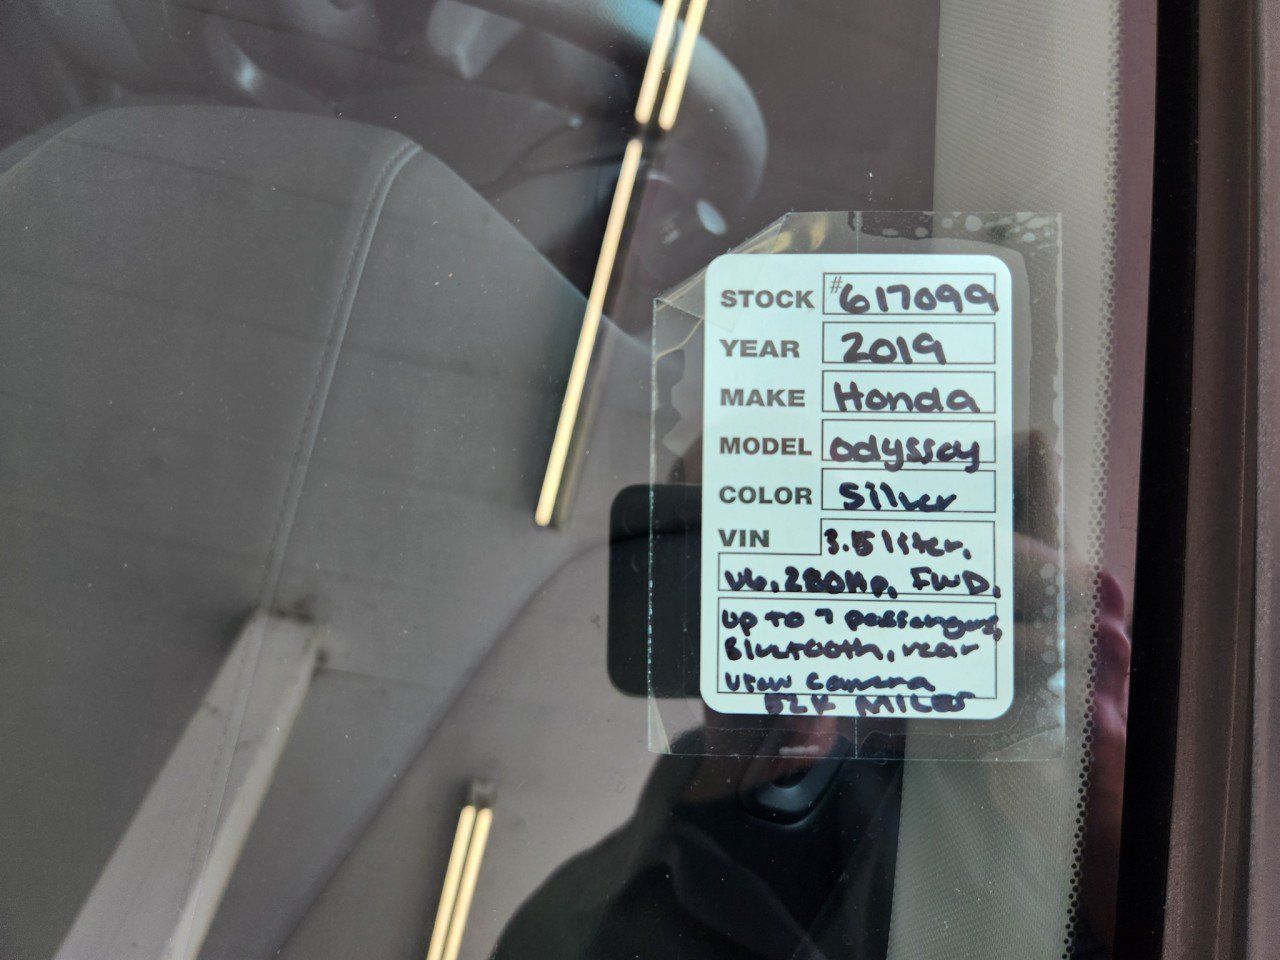 STOCK #617099
YEAR 2019
MAKE Honda
MODEL Odyssey
COLOR Silver
VIN 3.5 liter,
V6, 280Hp, FWD.
up to 7 passengers,
Bluetooth, rear
view camera
52K MILES